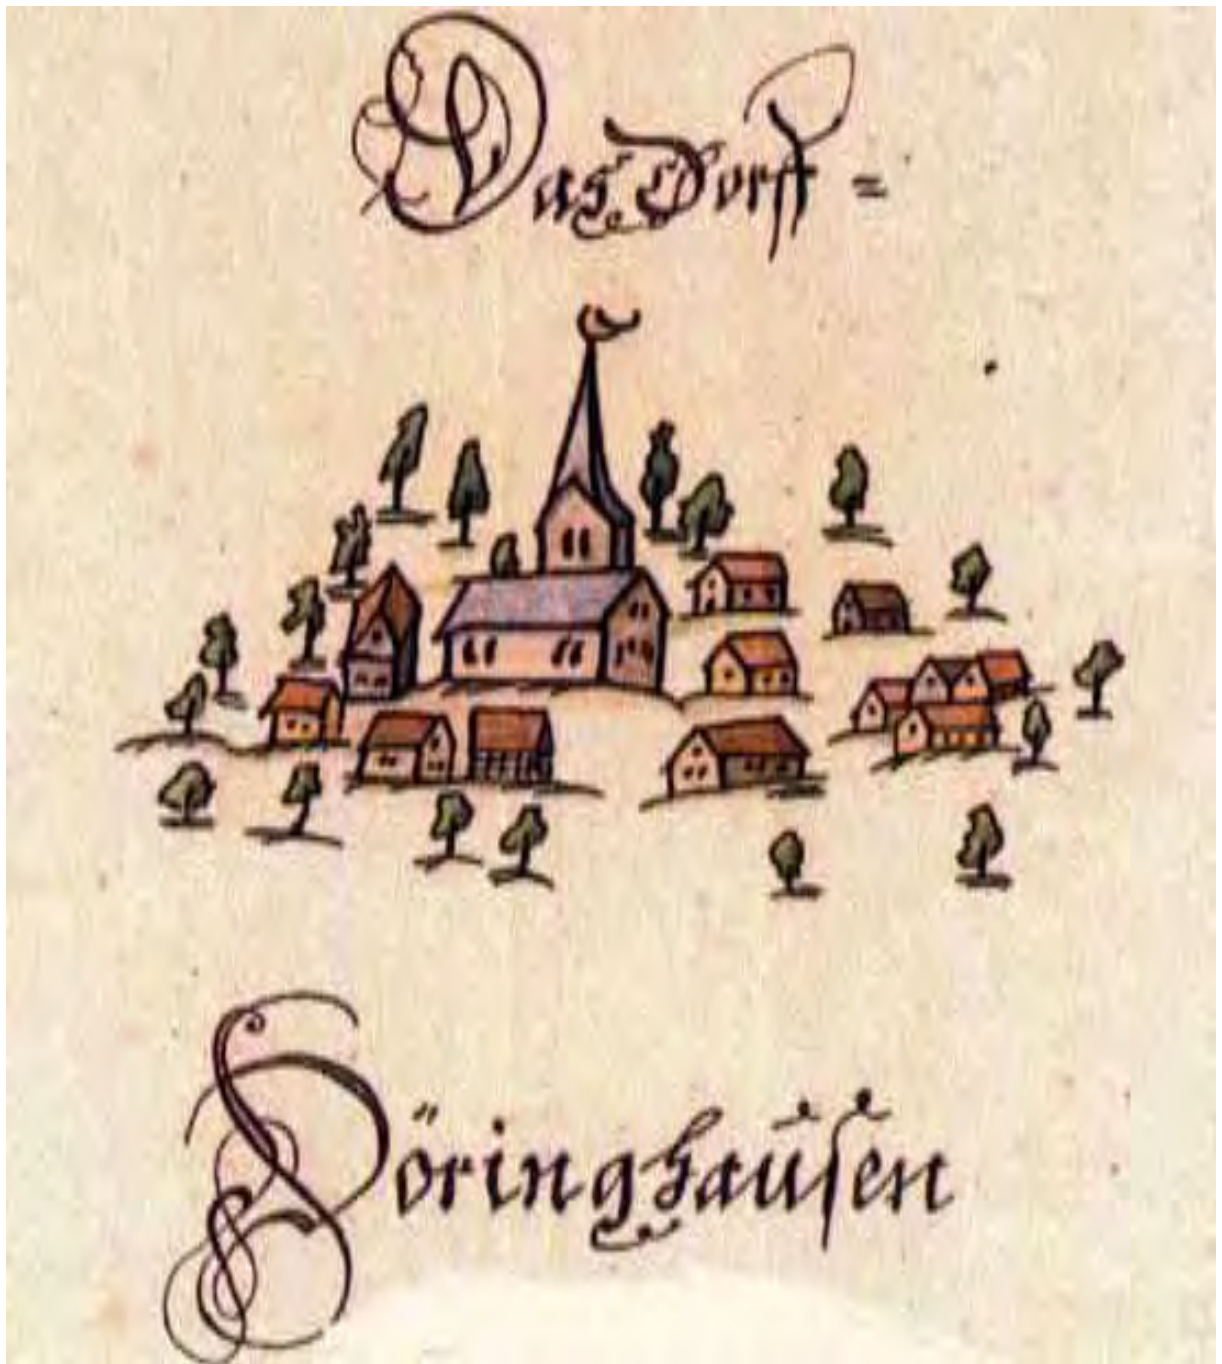 Das Dorff =
Höringhausen